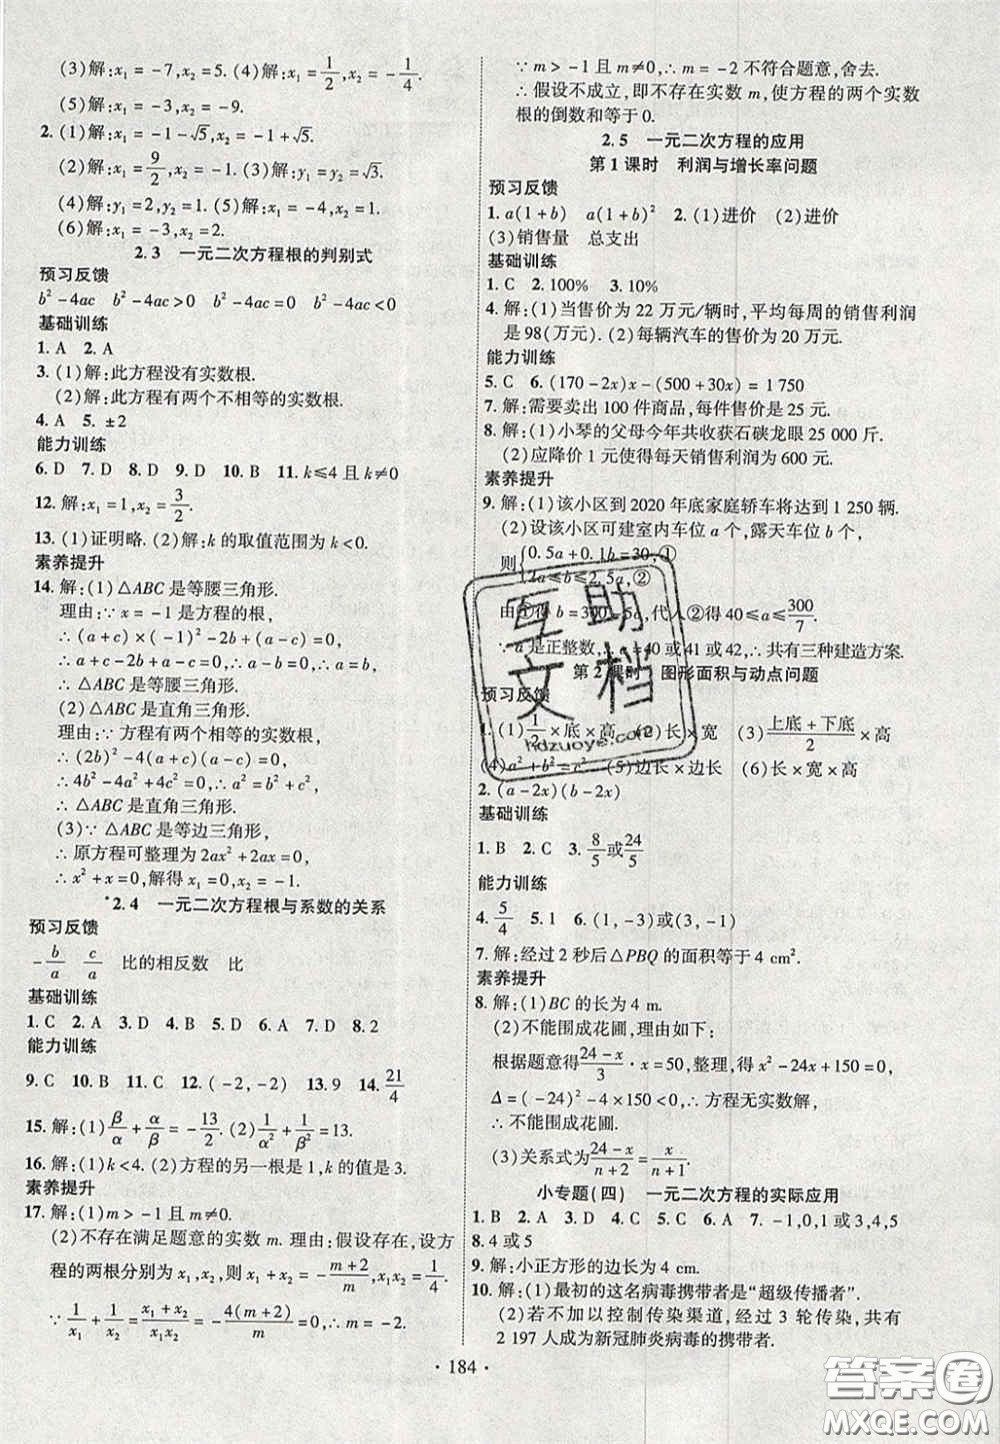 (3)解:x₁=-7,x₂=5. (4)解:x₁=1/2,x₂=-1/4.
(5)解:x₁=-3,x₂=-9.
2. (1)解:x₁=-1-√5,x₂=-1+√5.
(2)解:x₁=9/2,x₂=-1. (3)解:x₁=x₂=√3.
(4)解:y₁=2,y₂=1. (5)解:x₁=-4,x₂=1.
(6)解:x₁=-3,x₂=2.
2.3 一元二次方程根的判别式
预习反馈
b²-4ac b²-4ac>0 b²-4ac=0 b²-4ac<0
基础训练
1. A 2. A
3. (1)解:此方程没有实数根.
(2)解:此方程有两个不相等的实数根.
4. A 5. ±2
能力训练
6. D 7. D 8. D 9. D 10. B 11. k≤4且k≠0
12. 解:x₁=1,x₂=3/2.
13. (1)证明略. (2)解:k的取值范围为k<0.
素养提升
14. 解:(1)△ABC是等腰三角形.
理由:∵x=-1是方程的根,
∴(a+c)×(-1)²-2b+(a-c)=0.
∴a+c-2b+a-c=0. ∴a-b=0. ∴a=b.
∴△ABC是等腰三角形.
(2)△ABC是直角三角形.
理由:∵方程有两个相等的实数根,
∴(2b)²-4(a+c)(a-c)=0.
∴4b²-4a²+4c²=0. ∴a²=b²+c².
∴△ABC是直角三角形.
(3)∵△ABC是等边三角形,
∴原方程可整理为2ax²+2ax=0.
∴x²+x=0,解得x₁=0,x₂=-1.
*2.4 一元二次方程根与系数的关系
预习反馈
-b/a c/a 比的相反数 比
基础训练
1. C 2. A 3. D 4. D 5. D 6. A 7. D 8. 2
能力训练
9. C 10. B 11. C 12. (-2,-2) 13. 9 14. 21/4
15. 解:(1)β/α+α/β=-13/2. (2)1/α²+1/β²=13.
16. 解:(1)k<4. (2)方程的另一根是1,k的值是3.
素养提升
17. 解:(1)m>-1且m≠0.
(2)不存在满足题意的实数m.理由:假设存在,设方
程的两根分别为x₁,x₂,则x₁+x₂=-(m+2)/m,x₁x₂=1/4.
∵1/x₁+1/x₂=(x₁+x₂)/(x₁x₂)=-4(m+2)/m=0,∴m=-2.
∵m>-1且m≠0,∴m=-2不符合题意,舍去.
∴假设不成立,即不存在实数m,使方程的两个实数
根的倒数和等于0.
2.5 一元二次方程的应用
第1课时 利润与增长率问题
预习反馈
1. a(1+b) a(1+b)² 2. (1)进价 (2)进价
(3)销售量 总支出
基础训练
1. C 2. 100% 3. 10%
4. 解:(1)当售价为22万元/辆时,平均每周的销售利润
是98(万元). (2)每辆汽车的售价为20万元.
能力训练
5. C 6. (170-2x)x-(500+30x)=1 750
7. 解:需要卖出100件商品,每件售价是25元.
8. 解:(1)小琴的父母今年共收获石硖龙眼25 000斤.
(2)应降价1元使得每天销售利润为600元.
素养提升
9. 解:(1)该小区到2020年底家庭轿车将达到1 250辆.
(2)设该小区可建室内车位a个,露天车位b个,
则{0.5a+0.1b=30,①
2a≤b≤2.5a,②
由①得b=300-5a,代入②得40≤a≤300/7.
∵a是正整数,∴a=40或41或42,∴共有三种建造方案.
第2课时 图形面积与动点问题
预习反馈
1. (1)1/2×底×高 (2)长×宽 (3)(上底+下底)/2×高
(4)a²+b²=c² (5)边长×边长 (6)长×宽×高
2. (a-2x)(b-2x)
基础训练
1. B 2. C 3. 8/5或24/5
能力训练
4. 5/4 5. 1 6. (1,-3)或(3,-1)
7. 解:经过2秒后△PBQ的面积等于4 cm².
素养提升
8. 解:(1)BC的长为4 m.
(2)不能围成花圃,理由如下:
根据题意得(24-x)/3·x=50,整理,得x²-24x+150=0,
Δ=(-24)²-4×150<0,∴方程无实数解,
∴不能围成花圃.
(3)关系式为(24-x)/(n+2)=x/(n+1).
小专题(四) 一元二次方程的实际应用
1. B 2. A 3. C 4. 10 5. 2 6. A 7. -1,0,1或3,4,5
8. 4或5
9. 解:小正方形的边长为4 cm.
10. 解:(1)最初的这名病毒携带者是“超级传播者”.
(2)若不加以控制传染渠道,经过3轮传染,共有
2 197人成为新冠肺炎病毒的携带者.
·184·
互助
文档
hdzuoye.com
答案圈
MXQE.COM